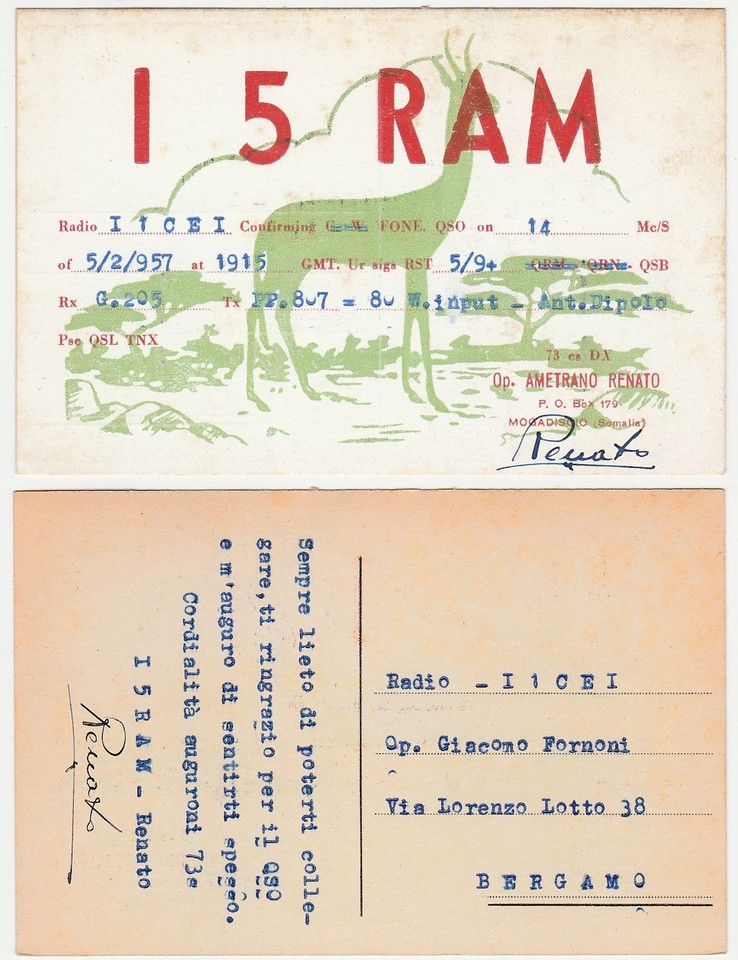 I 5 RAM
Radio I 1 C E I Confirming C W FONE. QSO on 14 Mc/S
of 5/2/957 at 1915 GMT. Ur sigs RST 5/9+ QRM QRN QSB
Rx G.205 Tx PP.807 = 80 W.input - Ant.Dipolo
Pse QSL TNX
73 es DX
Op. AMETRANO RENATO
P. O. Box 179
MOGADISCIO (Somalia)
Renato
Sempre lieto di poterti colle-
gare,ti ringrazio per il QSO
e m'auguro di sentirti spesso.
Cordialità auguroni 73s
I 5 R A M - Renato
Renato
Radio - I 1 C E I
Op. Giacomo Fornoni
Via Lorenzo Lotto 38
B E R G A M O